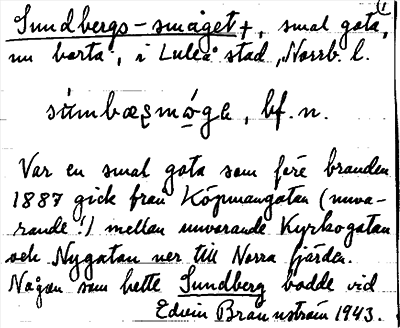 1
Sundbergs-smäget †, smal gata,
nu borta, i Luleå stad, Norrb. l.
bf. n.
Var en smal gata som före branden
1887 gick från Köpmangatan (nuva-
rande!) mellan nuvarande Kyrkogatan
och Nygatan ner till Norra fjärden.
Någon som hette Sundberg bodde vid
Edvin Brännström 1943.